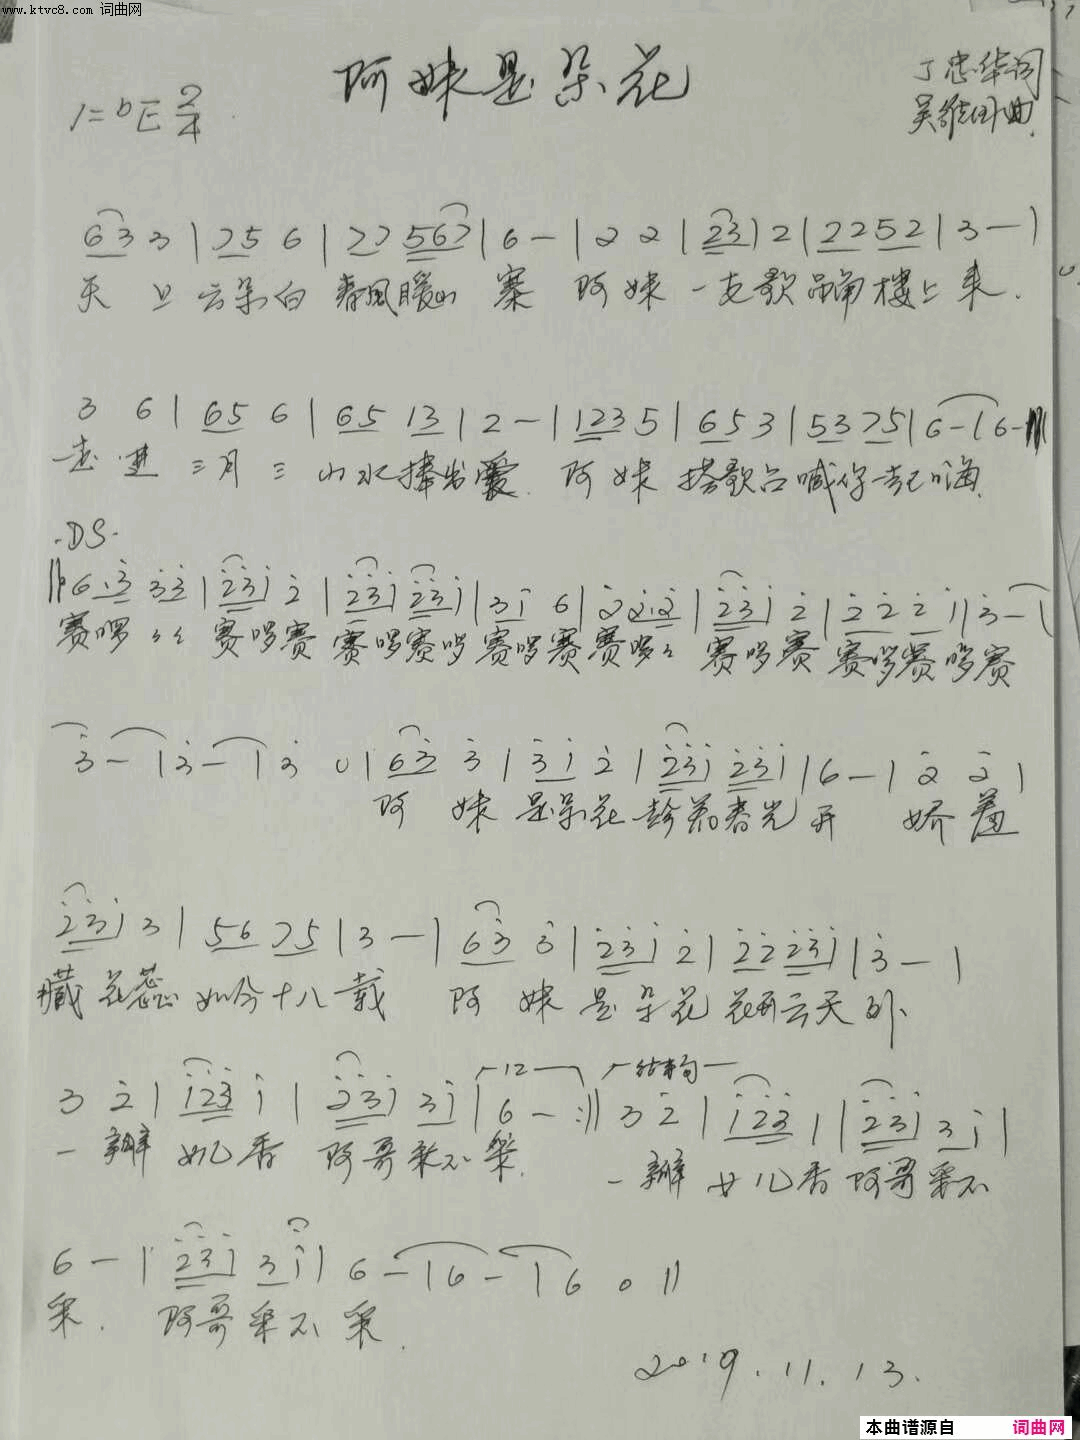 www.ktvc8.com 词曲网
阿妹是朵花
丁忠华词
1=bE 2/4
曲
63 3 | 75 6 | 77 567 | 6 - | 2 2 | 23 1 2 | 2252 | 3 - |
天上云朵白 春风暖山寨 阿妹一支歌 吊角楼上来.
3 6 | 65 6 | 65 13 | 2 - | 123 5 | 65 3 | 53 75 | 6 - | 6 -
走进三月三 山水捧出爱. 阿妹搭歌台 喊你一起嗨.
.DS.
6.3 33 | 231 2 | 231 231 | 31 6 | 2 2.2 | 231 2 | 22 21 | 3 - |
赛啰 赛啰赛 赛啰赛啰赛啰赛 赛啰 赛啰赛 赛啰赛啰赛
3 - | 3 - | 3 0 | 63 3 | 31 2 | 231 231 | 6 - | 2 2 |
阿妹是朵花 春光开 娇羞
231 3 | 56 75 | 3 - | 63 3 | 231 2 | 22 231 | 3 - |
藏花蕊 如今十八载 阿妹是朵花 花开云天外.
12 结束句
3 2 | 123 1 | 231 31 | 6 - :|| 3 2 | 123 1 | 231 31 |
一瓣女儿香 阿哥采不采. 一瓣女儿香 阿哥采不
6 - | 231 31 | 6 - | 6 - | 6 0 ||
采. 阿哥采不采.
2019.11.13.
本曲谱源自 词曲网